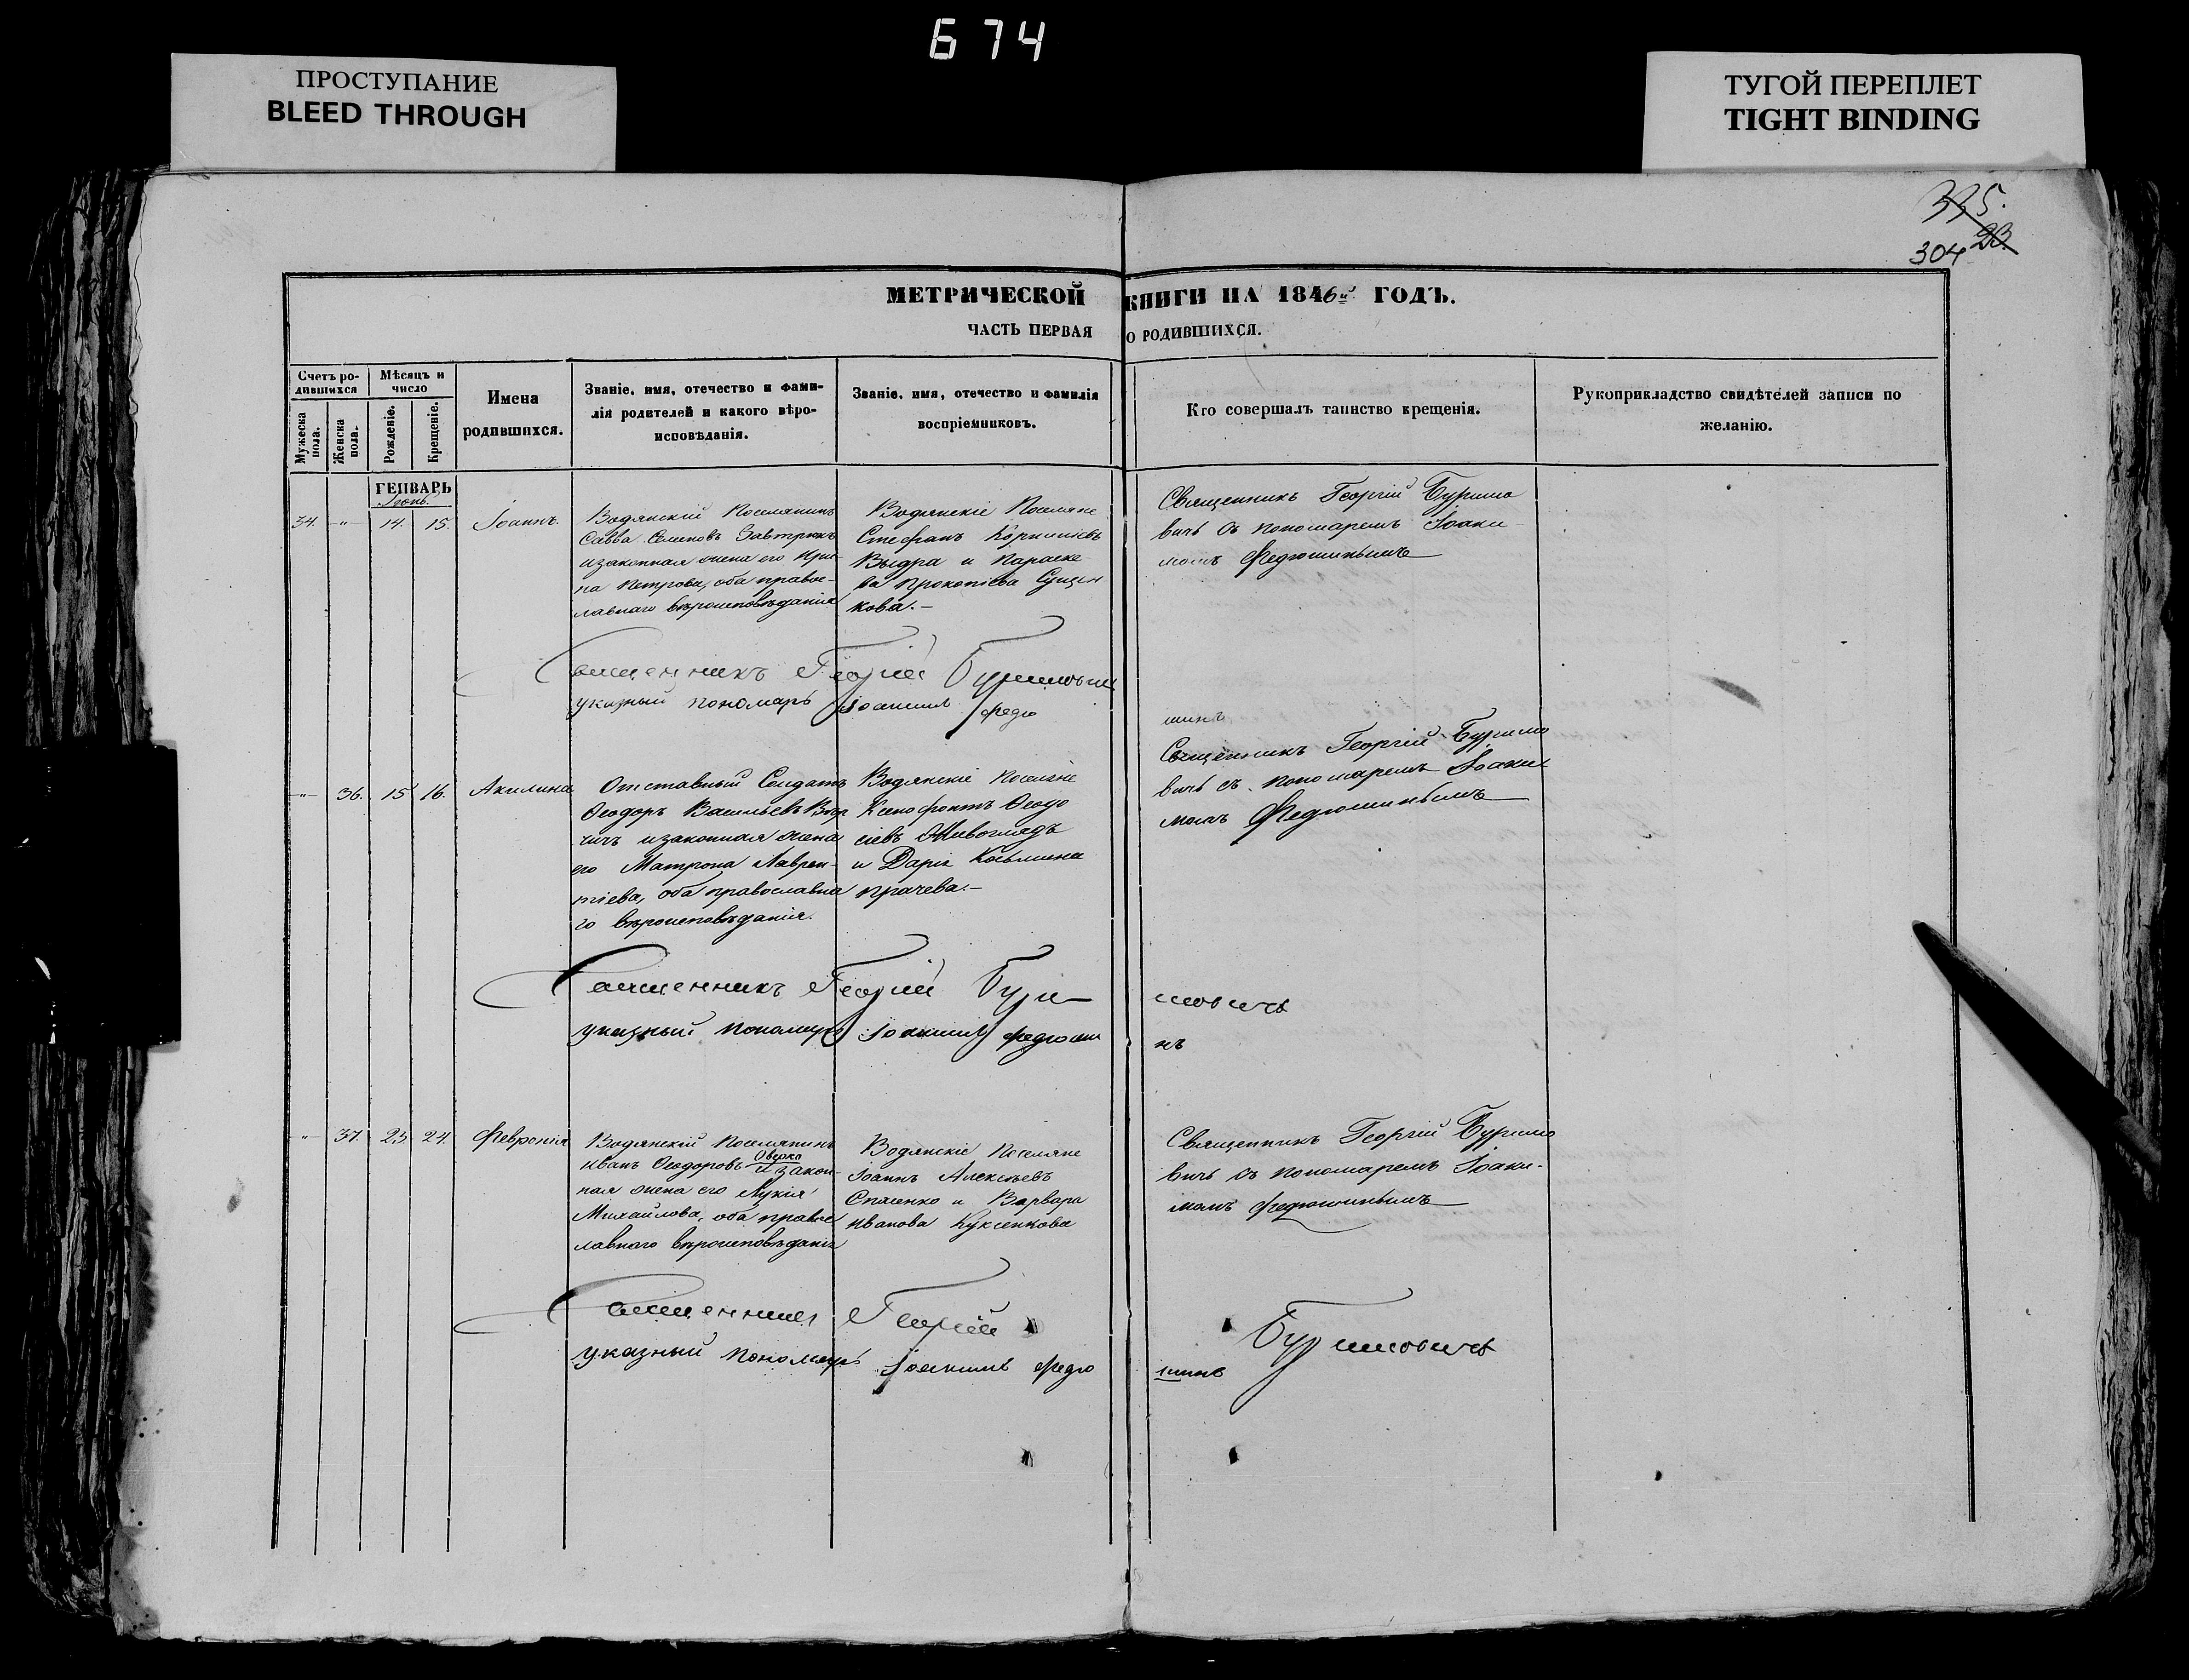 674
ПРОСТУПАНИЕ
BLEED THROUGH
ТУГОЙ ПЕРЕПЛЕТ
TIGHT BINDING
335.
23.
304
МЕТРИЧЕСКОЙ КНИГИ НА 1846й ГОДЪ.
ЧАСТЬ ПЕРВАЯ О РОДИВШИХСЯ.
Счетъ ро-
дившихся
Мужеска пола.
Женска пола.
Мѣсяцъ и
число
Рожденіе.
Крещеніе.
Имена
родившихся.
Званіе, имя, отечество и фами-
лія родителей и какого вѣро-
исповѣданія.
Званіе, имя, отечество и фамилія
воспріемниковъ.
Кто совершалъ таинство крещенія.
Рукоприкладство свидѣтелей записи по
желанію.
ГЕНВАРЬ
34. -"- 14. 15. Іоаннъ.
Водянскій Поселянинъ
Савва Семеновъ
и законная жена его Ири-
на Петрова, оба правос-
лавнаго вѣроисповѣданія
Водянскіе Поселяне
Стефанъ Корниліевъ
Выдра и Параске
ва Прокопіева Сущен
кова.-
Священникъ Георгій Буримо
вичъ съ пономаремъ Іоаки-
момъ Федюшинымъ
Священникъ Георгій Буримовичъ
указный пономарь Іоакимъ Федю
шинъ
-"- 36. 15 16. Акилина
Отставный Солдатъ
Ѳеодоръ Васильевъ
чичъ и законная жена
его Матрона Лаврен-
тіева, оба православна
го вѣроисповѣданія.
Водянскіе Поселяне
Ксенофонтъ Ѳеодо
сіевъ Живоглядъ
и Дарія Косьмина
Прачева.-
Священникъ Георгій Буримо
вичъ съ пономаремъ Іоаки
момъ Федюшинымъ
Священникъ Георгій Бури мовичъ
указный пономарь Іоакимъ Федюши нъ
-"- 37. 23. 24. Февронія
Водянскій Поселянинъ
Иванъ Ѳеодоровъ Овсяко и закон-
ная жена его Лукія
Михайлова, оба правос
лавнаго вѣроисповѣданія
Водянскіе Поселяне
Іоаннъ Алексѣевъ
Спасенко и Варвара
Иванова Куксенкова
Священникъ Георгій Буримо
вичъ съ пономаремъ Іоаки-
момъ Федюшинымъ
Священникъ Георгій Буримовичъ
указный пономарь Іоакимъ Федю шинъ